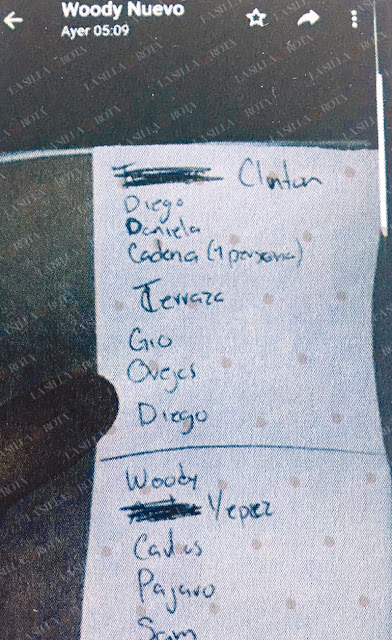 Woody Nuevo
Ayer 05:09
LA SILLA ROTA
Clinton
Diego
Daniela
Cadena (1 persona)
Terraza
Gio
Ovejas
Diego
Woody
Yepez
Carlos
Pajaro
Sam